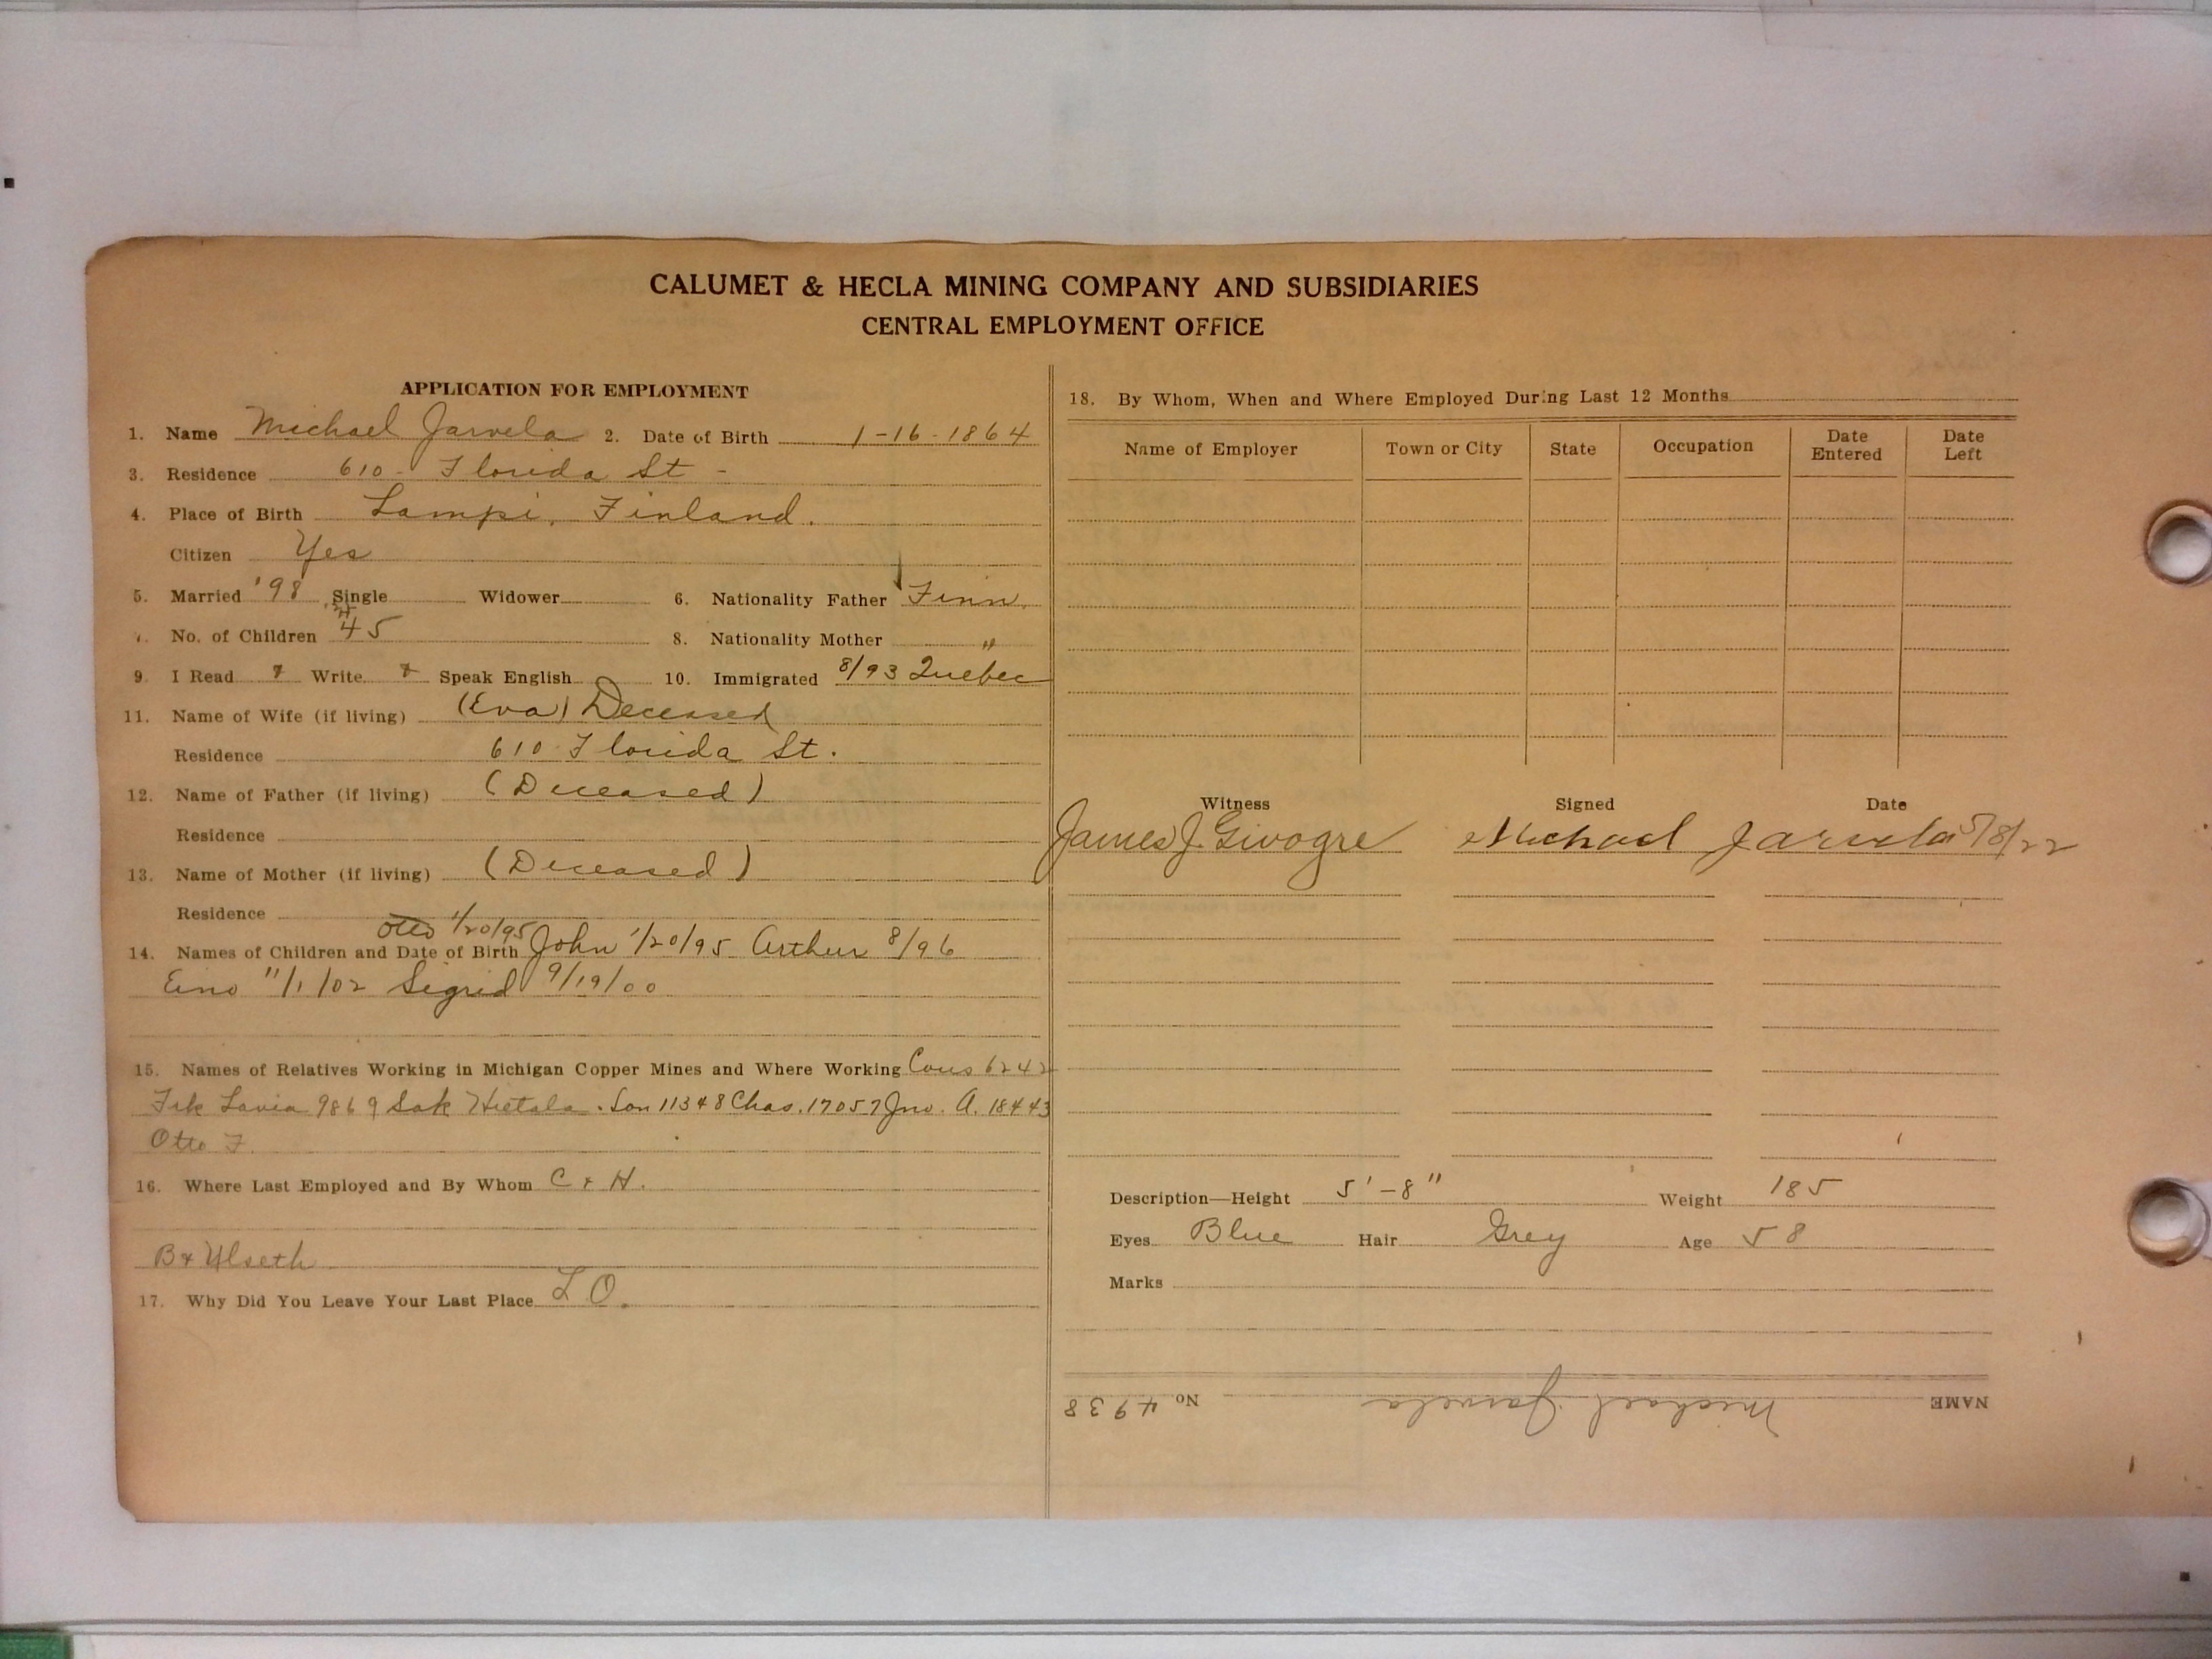 CALUMET & HECLA MINING COMPANY AND SUBSIDIARIES
CENTRAL EMPLOYMENT OFFICE
APPLICATION FOR EMPLOYMENT
1. Name Michael Jarvela 2. Date of Birth 1-16-1864
3. Residence 610 - Florida St -
4. Place of Birth Lampi, Finland.
Citizen Yes
5. Married '98 Single Widower 6. Nationality Father Finn
7. No. of Children 4 5 8. Nationality Mother "
9. I Read Write Speak English 10. Immigrated 8/93 Quebec
11. Name of Wife (if living) (Eva) Deceased
Residence 610 Florida St.
12. Name of Father (if living) (Deceased)
Residence
13. Name of Mother (if living) (Deceased)
Residence
Otto 1/20/95
14. Names of Children and Date of Birth John 1/20/95 Arthur 8/96
Eino 11/1/02 Sigrid 9/19/00
15. Names of Relatives Working in Michigan Copper Mines and Where Working Cous 6242
9869 Hietala. Son 11348 Chas. 17057 Jno. A. 18443
Otto F.
16. Where Last Employed and By Whom C & H.
B & Ulseth
17. Why Did You Leave Your Last Place L.O.
18. By Whom, When and Where Employed During Last 12 Months
Name of Employer Town or City State Occupation Date Entered Date Left
Witness Signed Date
James J. Michael Jarvela 5/8/22
Description—Height 5'-8" Weight 185
Eyes Blue Hair Grey Age 58
Marks
NAME Michael Jarvela No. 4938